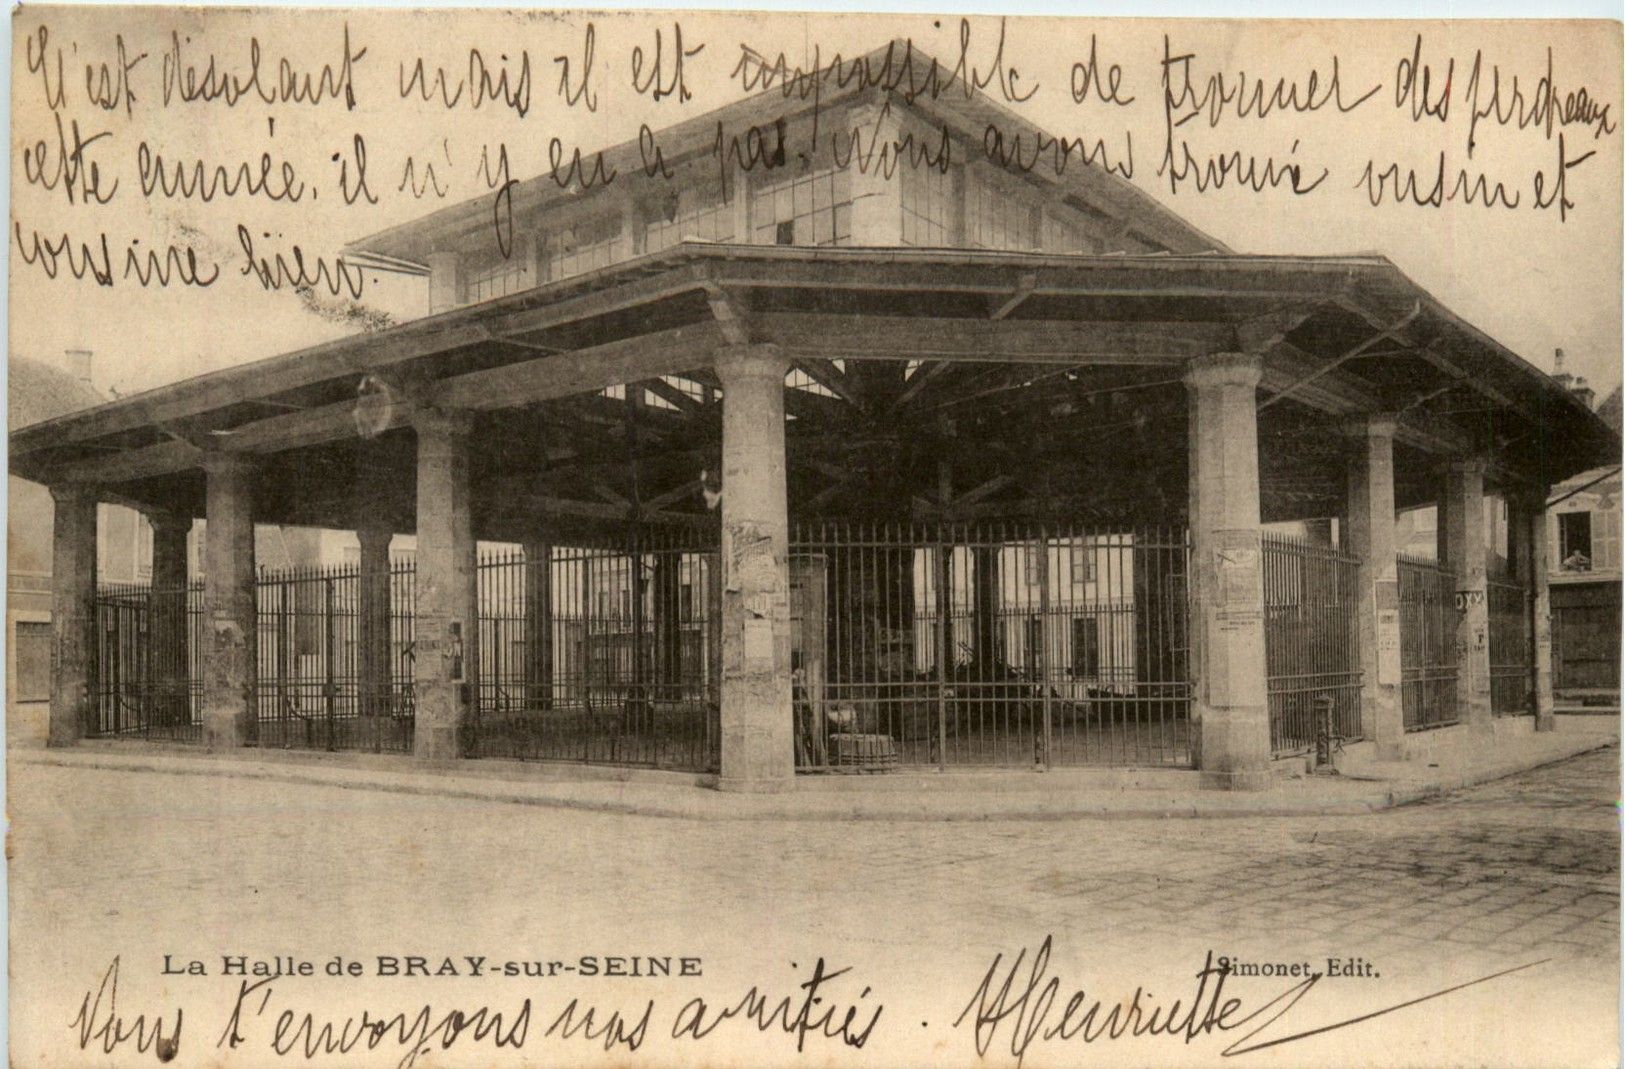 C'est désolant mais il est impossible de trouver des perdreaux
cette année, il n'y en a pas. Nous avons trouvé cousin et
cousine bien.
La Halle de BRAY-sur-SEINE
Simonet, Edit.
Nous t'envoyons nos amitiés. Henriette